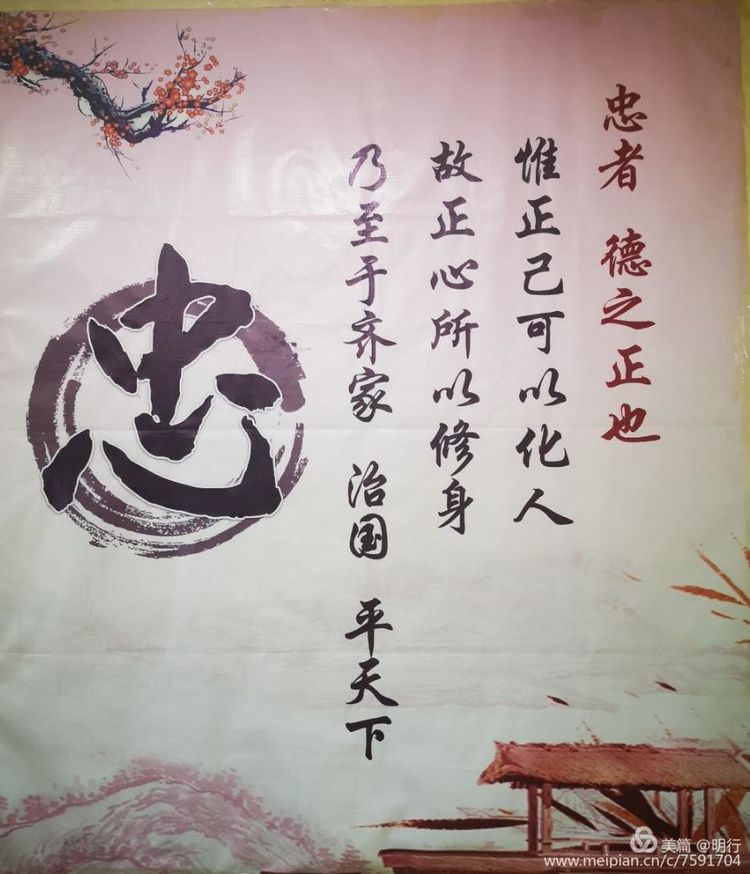 忠者 德之正也
惟正己可以化人
故正心所以修身
乃至于齐家 治国 平天下
忠
美篇 @明行
www.meipian.cn/c/7591704